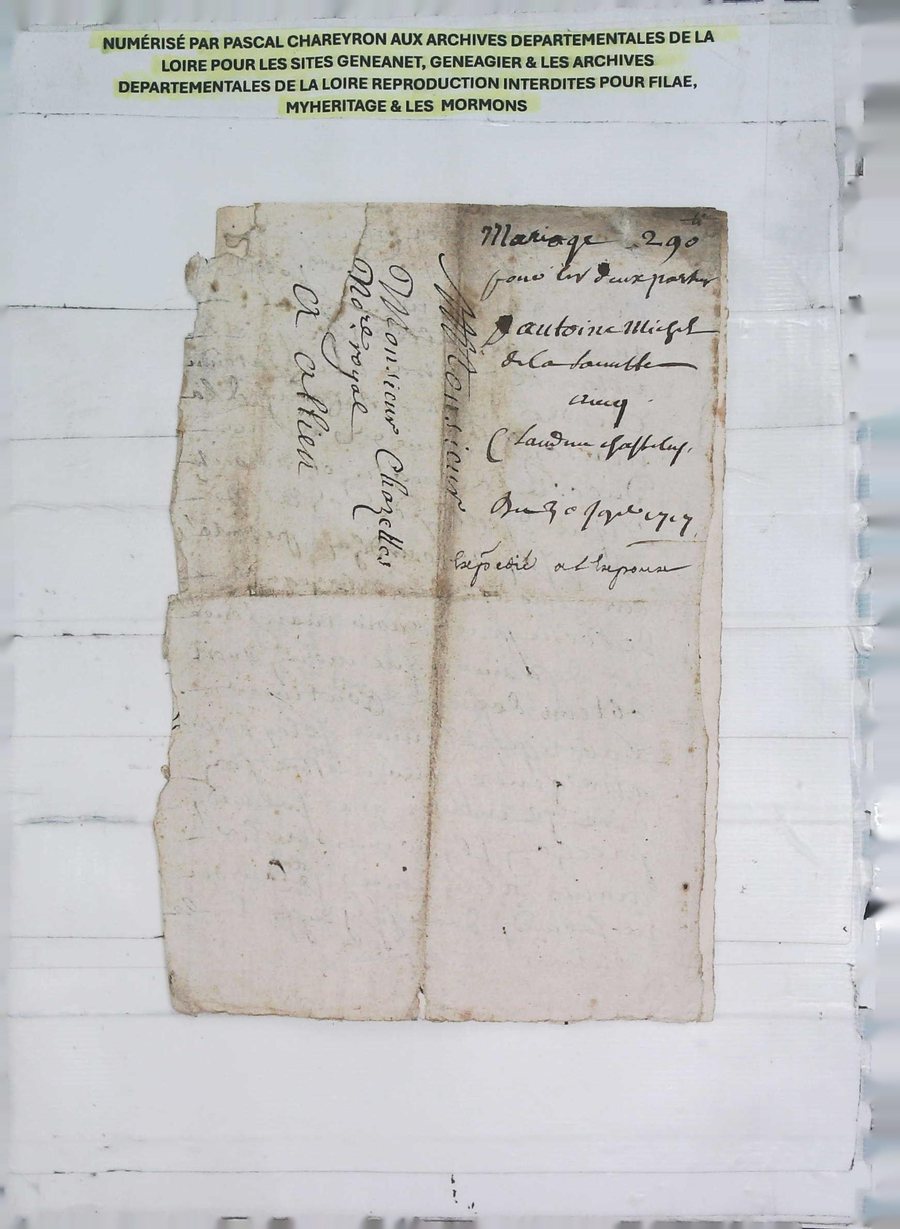 NUMÉRISÉ PAR PASCAL CHAREYRON AUX ARCHIVES DEPARTEMENTALES DE LA
LOIRE POUR LES SITES GENEANET, GENEAGIER & LES ARCHIVES
DEPARTEMENTALES DE LA LOIRE REPRODUCTION INTERDITES POUR FILAE,
MYHERITAGE & LES MORMONS
Mariage 290
pour les deux parties
d'antoine Michel
de la
avecq
Claudine
Du 30
Expedié a l'Espouse
Monsieur
Monsieur Chazelles
Nore royal
A allieu